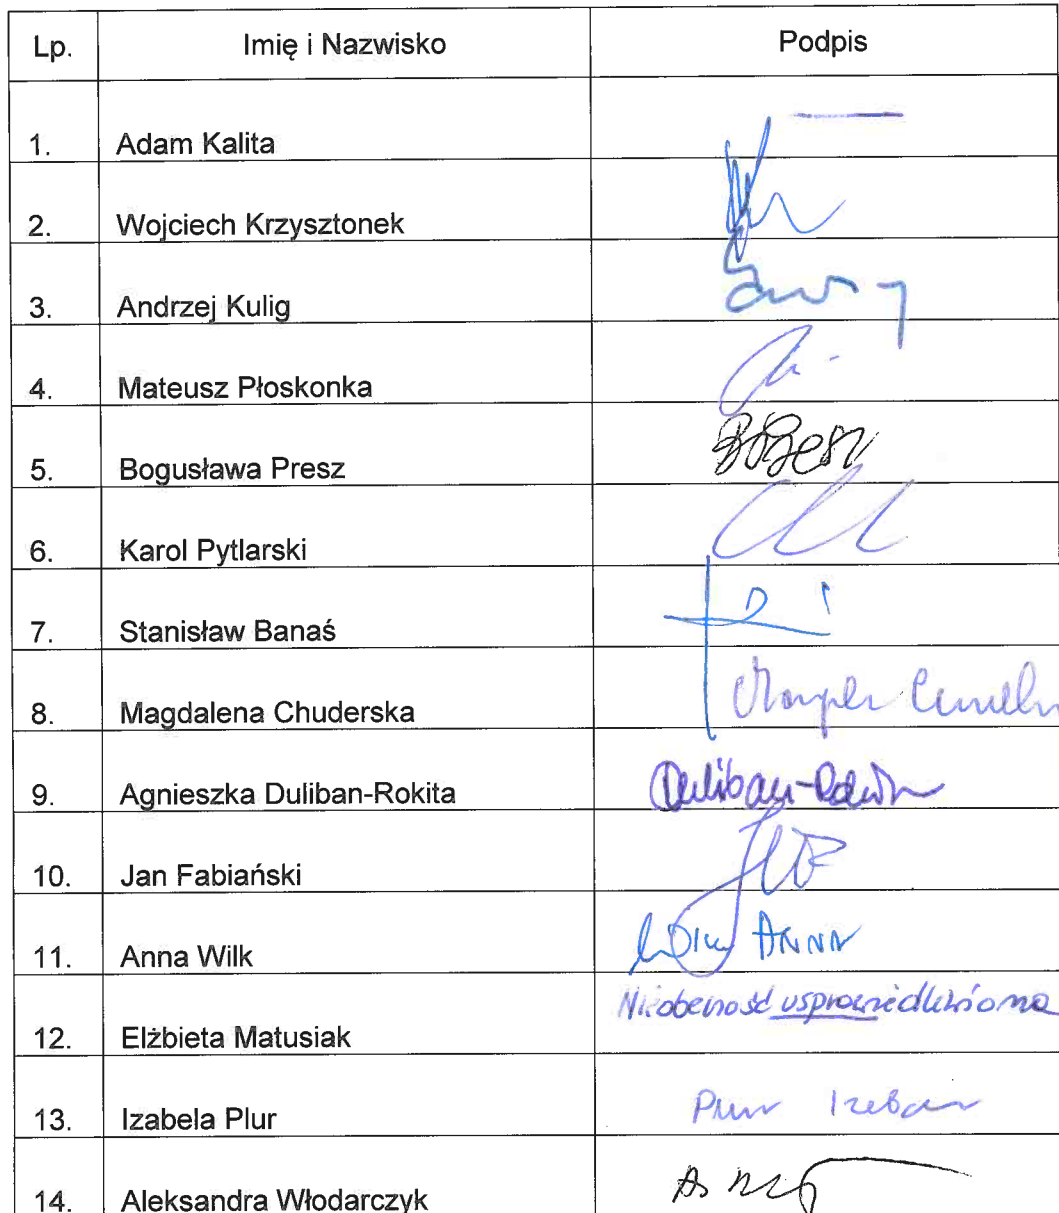 Lp. Imię i Nazwisko Podpis
1. Adam Kalita
2. Wojciech Krzysztonek
3. Andrzej Kulig
4. Mateusz Płoskonka
5. Bogusława Presz
6. Karol Pytlarski
7. Stanisław Banaś
8. Magdalena Chuderska
9. Agnieszka Duliban-Rokita Duliban-Rokita
10. Jan Fabiański
11. Anna Wilk Wilk ANNA
Nieobecność usprawiedliwiona
12. Elżbieta Matusiak
13. Izabela Plur Plur Izabela
14. Aleksandra Włodarczyk